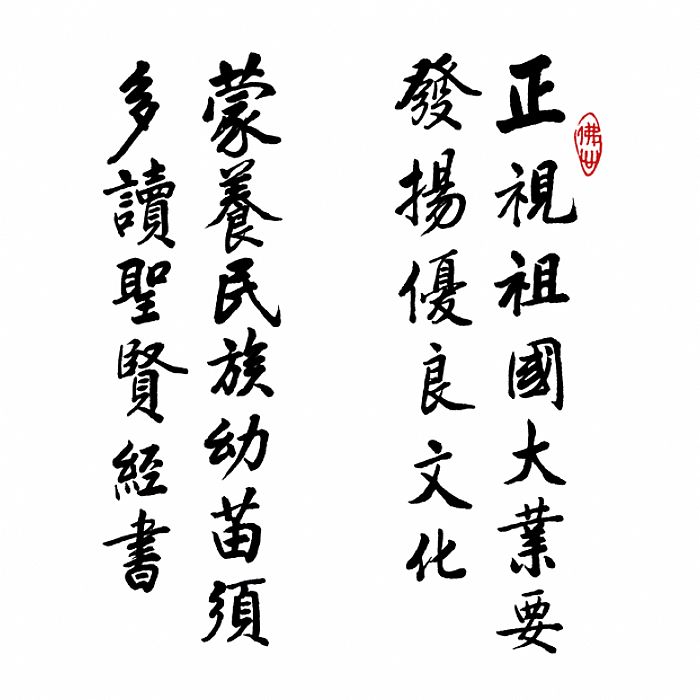 正視祖國大業要
發揚優良文化
蒙養民族幼苗須
多讀聖賢經書
佛世